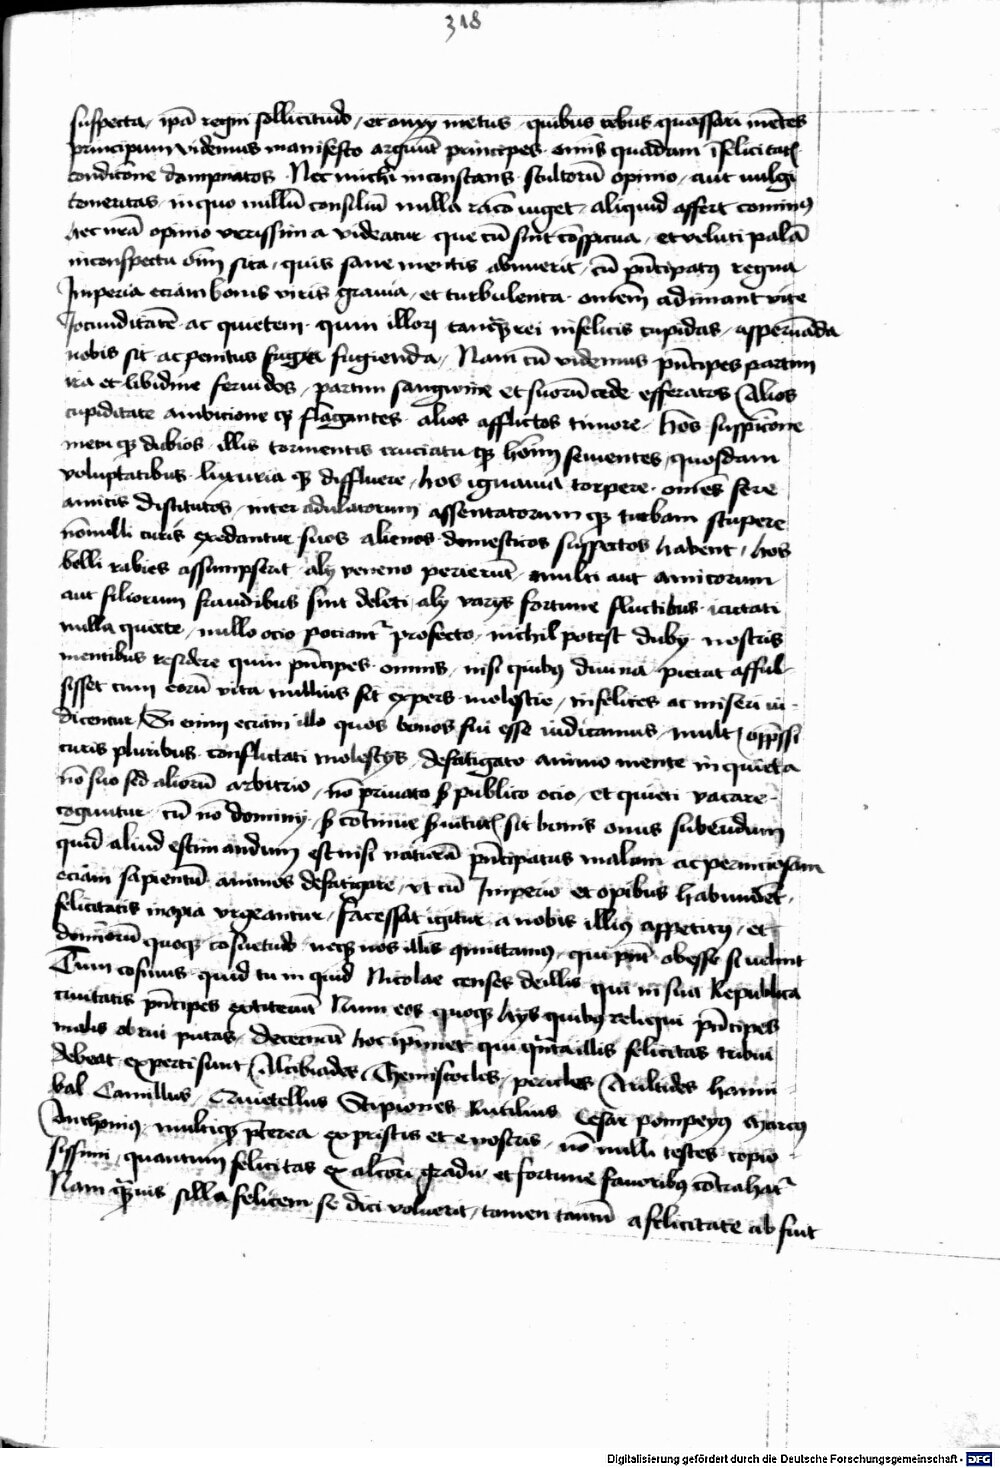 318
suspecta, ipā regni sollicitudo, et anxy metus, quibus rebus quassari mētes
principum videmus manifesto arguūt principes omīs quadam īfelicitatꝭ
condicōne dampnatos. Nec michi inconstans stultorū opinio, aut vulgi
temeritas, in quo nullū consiliū nulla racō viget, aliquid affert cominus
hec nrā opinio verissima videatur que cū sint cōspicua, et veluti palā
in conspectu oīm sita, quis sane mentis abnuerit, cū pn̄cipatus regna
Imperia eciam bonis viris gravia, et turbulenta omēm adimant vite
Jocunditatē ac quietem, quin illorꝝ tanqꝫ rei infelicis cupidas, aspernāda
nobis sit ac penitus fugienda, Nam cū videmus pn̄cipes partim
ira et libidine fervidos, partim sanguine et suorū cede efferatos Alios
cupiditate ambicione qꝫ flagantes alios afflictos timore, hos suspicōne
metu qꝫ dubios illis tormentis cruciatu qꝫ hoīm sevientes, quosdam
voluptatibus luxuria qꝫ diffluere, hos ignavia torpere omēs fere
amicis distitutos, inter adulatorum assentatorum qꝫ turbam stupere
nōnulli curis exedantur suos alienos domesticos suspectos habent, hos
belli rabies assumpserit aly veneno perierūt multi aut amicorum
aut filiorum fraudibus sint deleti, aly varys fortune fluctibus iactati
nulla quiete, nullo ocio pociantʳ profecto, nichil potest duby nostris
mentibus residere quin pn̄cipes omnis, nisi quibus divina pietat afful-
sisset cum eorū vita nullius sit expers molestie, infelices ac miseri iu-
dicentur, Si enim eciam illo quos bonos fui esse iudicamus, mult oppssi
curis pluribus conflictati molestys, defatigato animo mente inquieta
nō suo sed aliorū arbitrio, nō privato sꝫ publico ocio, et quieti vacare
coguntur cū nō dominy, sꝫ cōtinue servitutꝭ sit bonis onus subeundum
quid aliud estimandum est nisi naturā pn̄cipatus malam ac perniciosam
eciam sapientū animos defatigare, ut cū Imperio et opibus habundet,
felicitatis inopia urgeantur, facessat igitur a nobis illius appetitus, et
dominorū quoqꝫ cōsuetudo, neqꝫ nos illis qmittamus, qui pn̄t obesse si velint
Tum cosmus quid tu inquid Nicolae censes de illis qui in sua Republica
civitatis pn̄cipes extiterūt Num eos quoqꝫ hys quibus reliqui pn̄cipes
malis obrui putas, decernā hoc ipīmet qui qn̄ta illis felicitas tribui
debeat experti sunt, Alcibiades, Themistocles, pericles Aristides hanni
bal Camillus, Qmetellus Scipiones Rutilius Cesar pompeyus Marcus
Anthonius, multiqꝫ pt̄erea ex priscis et e nostris, nō nulli testes copio
sissimi, quantum felicitas ex alciori gradu et fortune favoribus cōtrahatʳ
Nam qꝫvis silla felicem se dici voluerit, tamen tantū a felicitate ab fuit
Digitalisierung gefördert durch die Deutsche Forschungsgemeinschaft - DFG